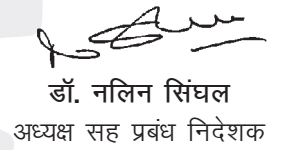 डॉ. नलिन सिंघल
अध्यक्ष सह प्रबंध निदेशक